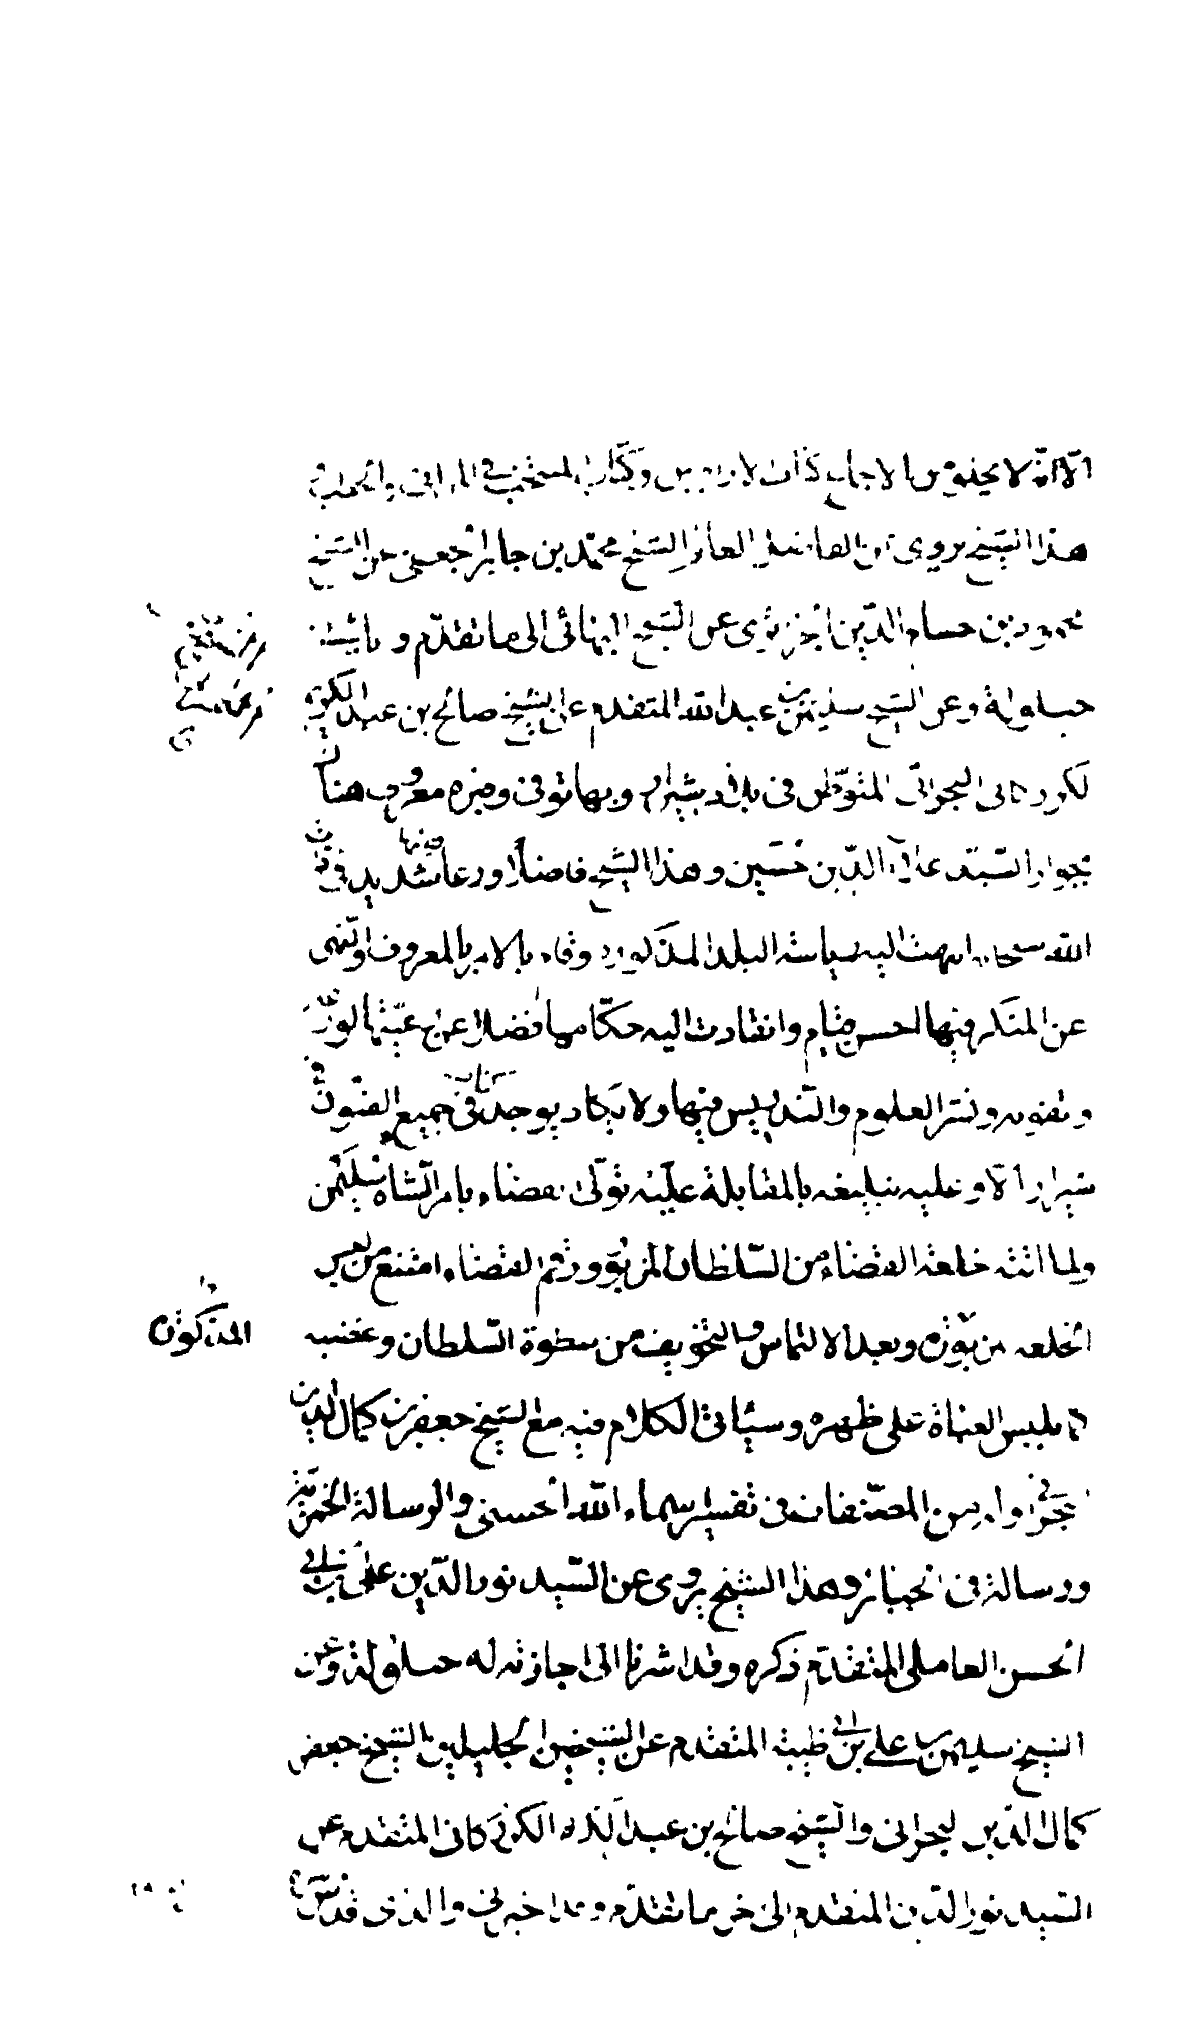 الا انه لا يخلو من الاجمال وكتاب المنتخب في المراثي والخطب
هذا الشيخ يروي عن الفاضل الشيخ محمد بن جابر النجفي عن الشيخ
محمود بن حسام الدين الجزائري عن الشيخ البهائي الى ما تقدم و
ح حيلولة وعن الشيخ سليمن بن عبد الله المتقدم عن الشيخ صالح بن عبد الكريم
الكرزكاني البحراني المتوطن في بلاد شيراز وبها توفي وقبره معروف هناك
بجوار السيد علاء الدين بن حسين وهذا الشيخ فاضلا ورعا فقيها شديد في ذات
الله سبحانه انتهت اليه رياسة البلد المذكورة وقام بالامر بالمعروف والنهي
عن المنكر فيها احسن قيام وانقادت اليه حكامها فضلا عن رعيتها لورعه
وتقويه ونشر العلوم والتدريس فيها ولا يكاد يوجد كتاب في جميع الفنون في
شيراز الا وعليه تبليغه بالمقابلة عليه تولى القضاء بامر الشاه سليمن
ولما اتته خلعة القضاء من السلطان المزبور ورقم القضاء امتنع من لبس
الخلعة المذكورة وبعد الالتماس والتخويف من سطوة السلطان وغضبه
لبس العباة على ظهره وسيأتي الكلام فيه مع الشيخ جعفر بن كمال الدين
البحراني وله من المصنفات في تفسير اسماء الله الحسنى والرسالة الخمرية
ورسالة في الجنائز وهذا الشيخ يروي عن السيد نور الدين علي بن ابي
الحسن العاملي المتقدم ذكره وقد اشرنا الى اجازته له حيلولة وعن
الشيخ سليمن بن علي بن ابي ظبية المتقدم عن الشيخين الجليلين الشيخ جعفر
كمال الدين البحراني والشيخ صالح بن عبد الكريم الكرزكاني المتقدم عن
السيد نور الدين المتقدم الى اخر ما تقدم و اخبرني والدي قدس